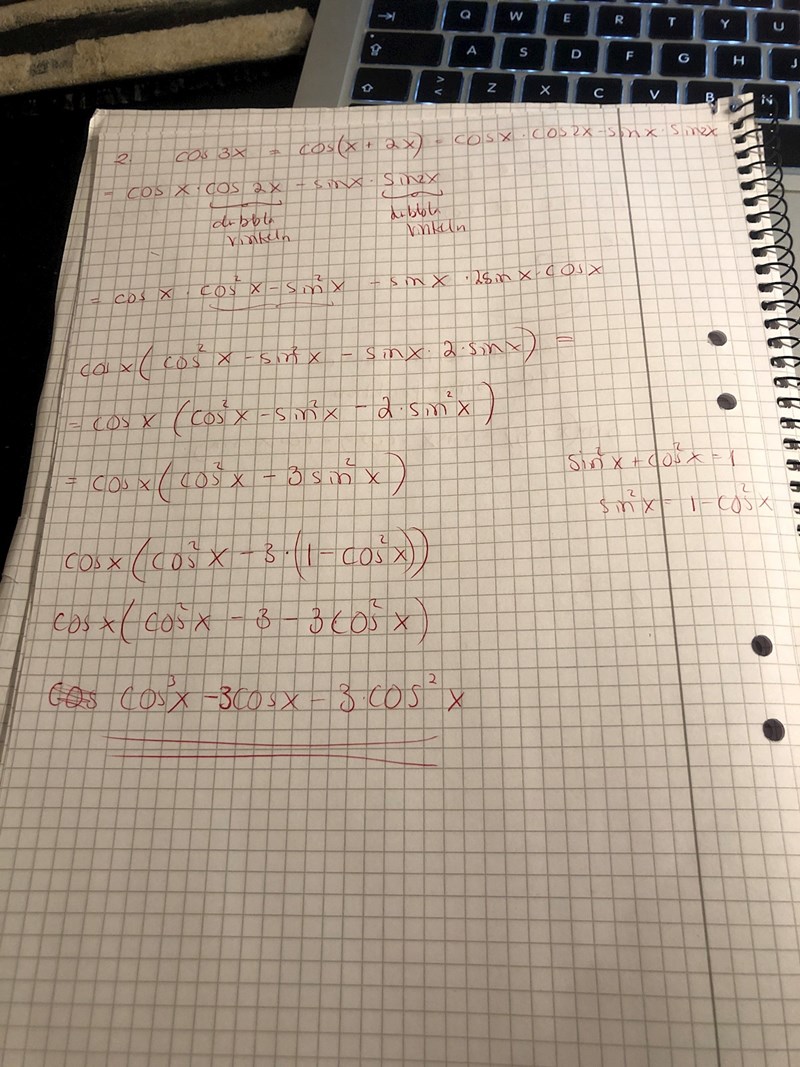 Q W E R T Y U
A S D F G H J
> < Z X C V B N
2. cos 3x = cos(x + 2x) = cosx · cos2x - sinx · sin2x
= cos x · cos 2x - sinx · sin2x
dubbla dubbla
vinkeln vinkeln
= cos x · cos²x - sin²x - sinx · 2sinx · cosx
cosx(cos²x - sin²x - sinx · 2 · sinx) =
= cosx (cos²x - sin²x - 2 · sin²x)
= cosx(cos²x - 3sin²x)
sin²x + cos²x = 1
sin²x = 1 - cos²x
cosx(cos²x - 3 · (1 - cos²x))
cosx(cos²x - 3 - 3cos²x)
cos cos³x - 3cosx - 3 · cos²x